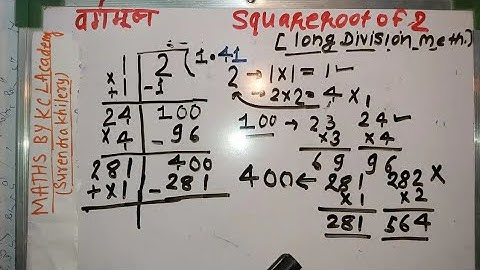 वर्गमूल Squareroot of 2
[long Division meth.]
MATHS BY K C L Academy
(Surendra khilery)
1 | 2 ( 1.41
×1
+1 | -1
24 | 100
×4 | -96
281 | 400
+×1 | -281
2 → 1×1=1 ✓
→ 2×2=4 ×
100 → 23 24 ✓
×3 ×4
69 96
400 ← 281 282 ×
×1 ×2
281 564